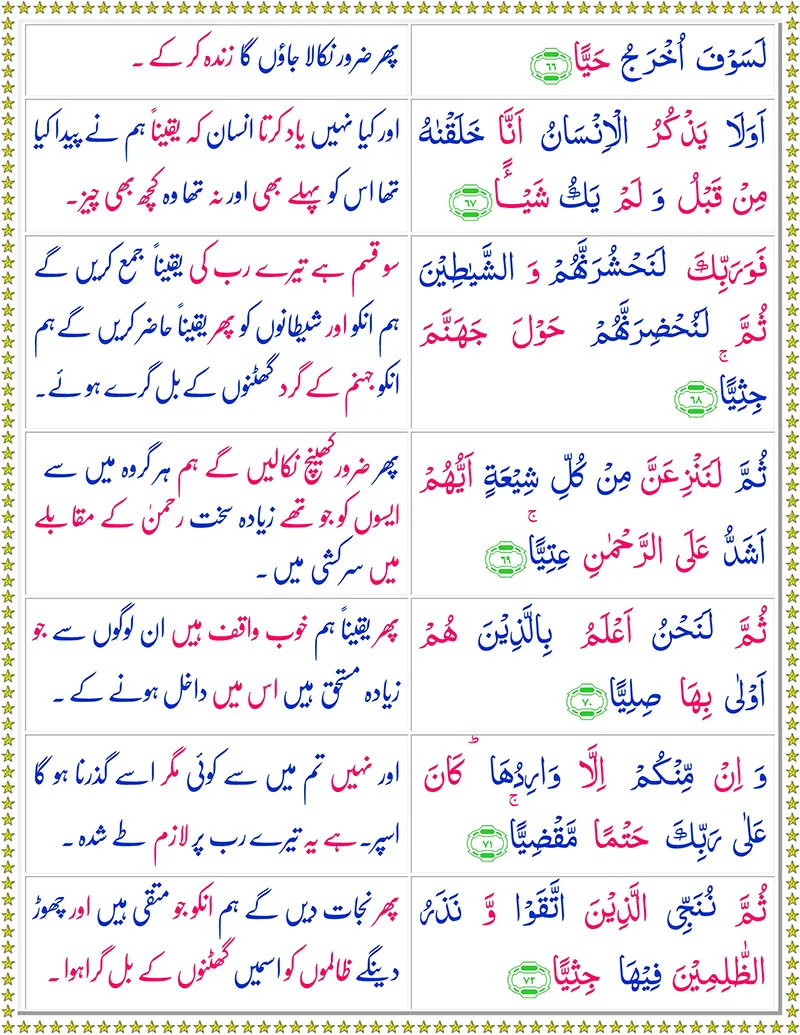 لَسَوْفَ اُخْرَجُ حَيًّا ﴿۶۶﴾
پھر ضرور نکالا جاؤں گا زندہ کر کے ۔
اَوَلَا يَذْكُرُ الْاِنْسَانُ اَنَّا خَلَقْنٰهُ
مِنْ قَبْلُ وَ لَمْ يَكُ شَيْـًٔا ﴿۶۷﴾
اور کیا نہیں یاد کرتا انسان کہ یقیناً ہم نے پیدا کیا
تھا اس کو پہلے بھی اور نہ تھا وہ کچھ بھی چیز۔
فَوَرَبِّكَ لَنَحْشُرَنَّهُمْ وَ الشَّيٰطِيْنَ
ثُمَّ لَنُحْضِرَنَّهُمْ حَوْلَ جَهَنَّمَ
جِثِيًّا ۚ ﴿۶۸﴾
سو قسم ہے تیرے رب کی یقیناً جمع کریں گے
ہم انکو اور شیطانوں کو پھر یقیناً حاضر کریں گے ہم
انکو جہنم کے گرد گھٹنوں کے بل گرے ہوئے۔
ثُمَّ لَنَنْزِعَنَّ مِنْ كُلِّ شِيْعَةٍ اَيُّهُمْ
اَشَدُّ عَلَى الرَّحْمٰنِ عِتِيًّا ۚ ﴿۶۹﴾
پھر ضرور کھینچ نکالیں گے ہم ہر گروہ میں سے
ایسوں کو جو تھے زیادہ سخت رحمنٰ کے مقابلے
میں سرکشی میں ۔
ثُمَّ لَنَحْنُ اَعْلَمُ بِالَّذِيْنَ هُمْ
اَوْلٰى بِهَا صِلِيًّا ﴿۷۰﴾
پھر یقیناً ہم خوب واقف ہیں ان لوگوں سے جو
زیادہ مستحق ہیں اس میں داخل ہونے کے ۔
وَ اِنْ مِّنْكُمْ اِلَّا وَارِدُهَا ۚ كَانَ
عَلٰى رَبِّكَ حَتْمًا مَّقْضِيًّا ۚ ﴿۷۱﴾
اور نہیں تم میں سے کوئی مگر اسے گذرنا ہو گا
اسپر۔ ہے یہ تیرے رب پر لازم طے شدہ ۔
ثُمَّ نُنَجِّى الَّذِيْنَ اتَّقَوْا وَّ نَذَرُ
الظّٰلِمِيْنَ فِيْهَا جِثِيًّا ﴿۷۲﴾
پھر نجات دیں گے ہم انکو جو متقی ہیں اور چھوڑ
دینگے ظالموں کو اسمیں گھٹنوں کے بل گراہوا ۔